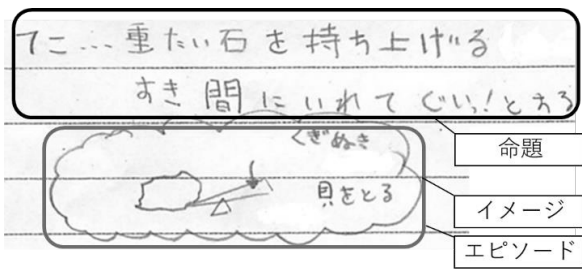 てこ…重たい石を持ち上げる
すき間にいれてぐいっ!とおる
くぎぬき
貝をとる
命題
イメージ
エピソード